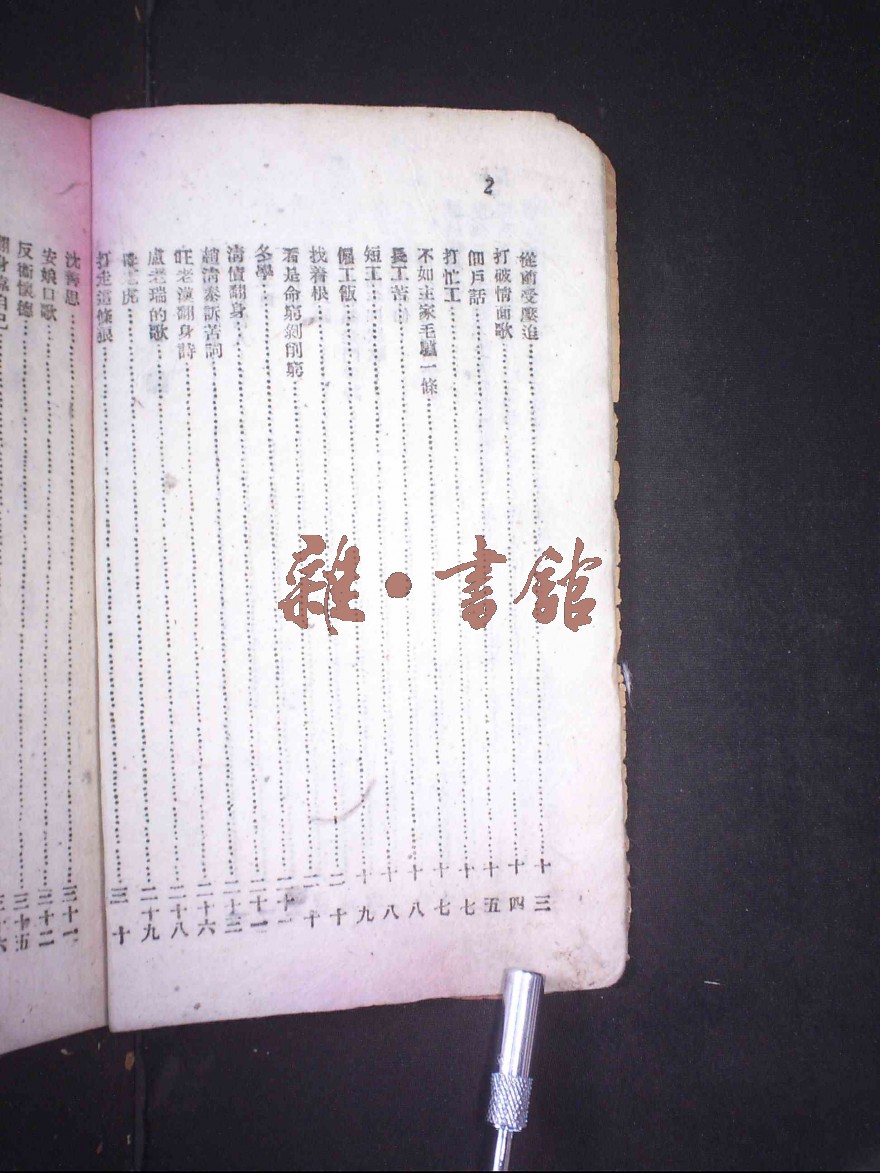 2
從前受壓迫……十三
打破情面歌……十四
佃戶話……十五
打忙工……十七
長工苦……十八
不如主家毛驢一條……十八
短工……十九
傭工飯……二十
找着根……二十
看是命窮剝削窮……二十一
冬學……二十一
清債翻身……二十三
趙清泰訴苦詞……二十六
旺老漢翻身詩……二十八
盧老瑞的歌……二十九
虎
打走這條狼……三十
沈善思……三十一
安娘口歌……三十二
反衛懷德……三十五
翻身靠自己……三十六
雜·書館